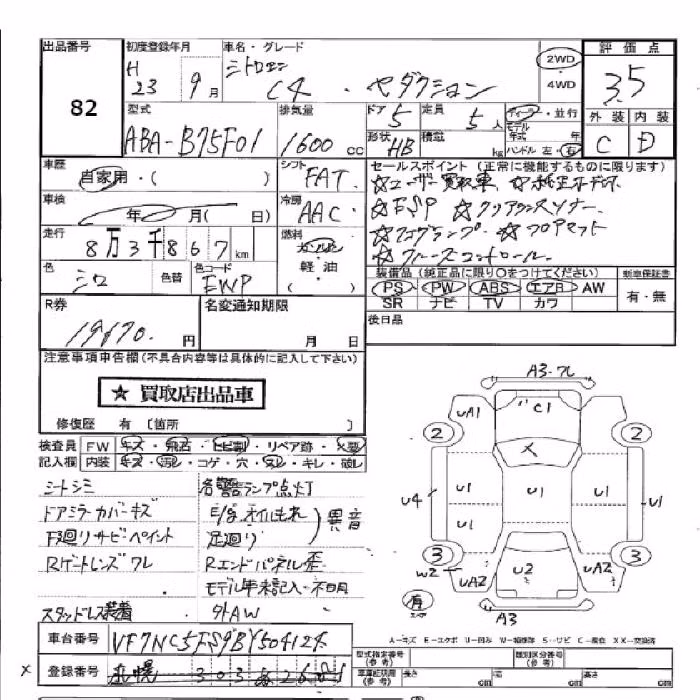 出品番号 初度登録年月 車名・グレード 評価点
82 H 23 9月 シトロエン C4・セダクション 2WD 4WD 3.5
型式 排気量 ドア 5 定員 5人 ディーラー・並行 外装 内装
ABA-B75F01 1600cc 形状 HB 積載 kg モデル年式 年 ハンドル 左・右 C D
車歴 自家用・( ) シフト FAT セールスポイント(正常に機能するものに限ります)
☆ユーザー買取車 ☆純正
車検 年 月( 日) 冷房 AAC ☆ESP ☆クリアランスソナー
走行 8万3千867km 燃料 ガソリン 軽油 ( ) ☆フォグランプ ☆フロアマット
☆クルーズコントロール
色 シロ 色替 色コード EWP 装備品(純正品に限り○をつけてください) 新車保証書
PS PW ABS エアB AW 有・無
SR ナビ TV カワ
R券 19170円 名変通知期限 月 日 後日品
注意事項申告欄(不具合内容等は具体的に記入して下さい)
★ 買取店出品車
修復歴 有 〔箇所 〕
検査員 FW キズ・飛石・ヒビ割・リペア跡・X要
記入欄 内装 キズ・汚レ・コゲ・穴・スレ・キレ・破レ
シートシミ 各警告ランプ点灯
ドアミラーカバーキズ E/gオイルもれ
下廻りサビ・ペイント 足廻り 異音
Rゲートレンズワレ Rエンドパネル歪
モデル年未記入・不明
スタッドレス装着 外AW
A3・ワレ
UA1 C1
2 X 2
U4 U1 U1 U1 U1
U1
3 3
W2 UA2 U2 UA2
有
A3
A-キズ E-エクボ U-凹み W-補修跡 S-サビ C-腐蝕 XX-交換済
車台番号 VF7NC5FS9BY504124 型式指定番号(参考) 類別区分番号(参考)
X 登録番号 札幌 303 車庫証明用(参考) 長さ cm 幅 cm 高さ cm